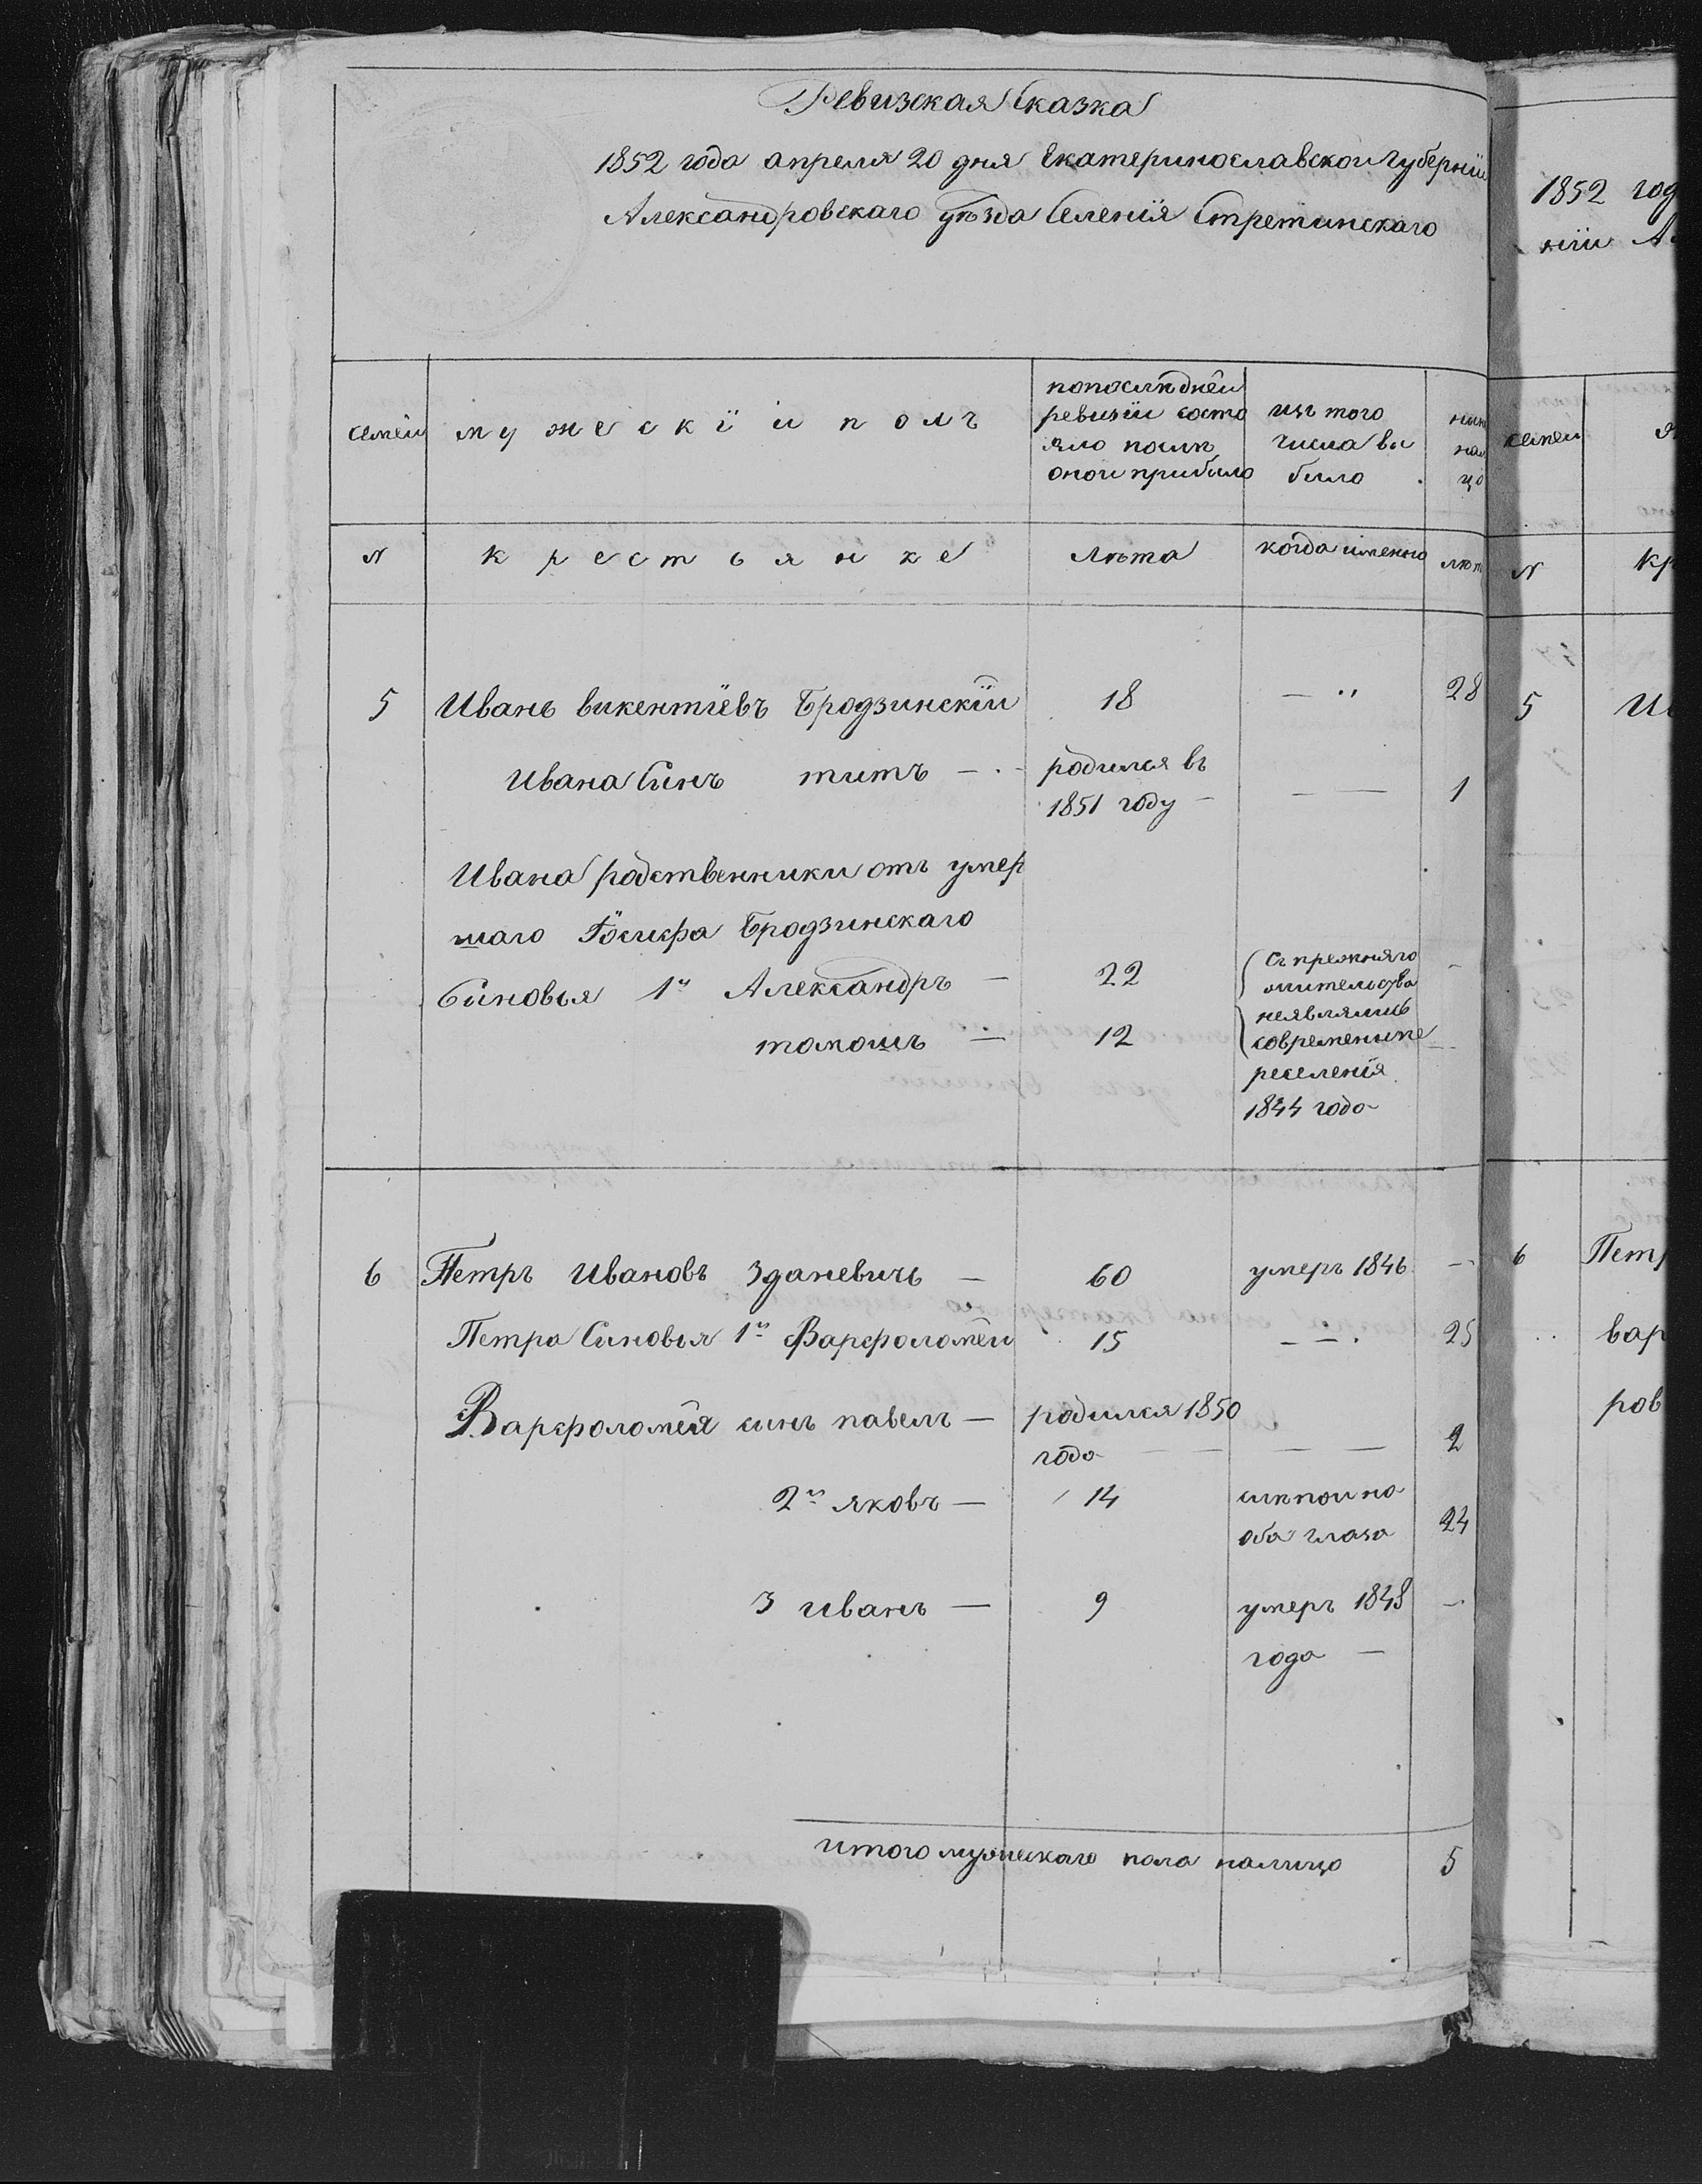 Ревизская Сказка
1852 года апреля 20 дня Екатеринославскои Губернии
Александровскаго уѣзда Селенія Стретинскаго
семеи
мужескіи полъ
попослѣднеи
ревизіи состо
яло послѣ
онои прибыло
изъ того
числа вы
было
нын
нал
цо
N
крестьянхе
лѣта
когда именно
лѣт
5
Иванъ викентіевъ Бродзинскіи
18
28
Ивана Синъ титъ —
родился въ
1851 году —
1
Ивана родственники отъ умер
шаго Іосифа Бродзинскаго
Синовья 1й Александръ —
22
томашъ —
12
съ прежняго
жительства
неявлялись
современипе
реселенія
1844 года
6
Петръ Ивановъ Зданевичъ —
60
умеръ 1846
Петра Синовья 1й Варфоломеи
15
25
Варфоломея синъ павелъ —
родился 1850
года
2
2й яковъ —
14
слѣпои на
оба глаза
24
3 иванъ —
9
умеръ 1848
года —
итого мужескаго пола налицо
5
1852 год
ніи А
семеи
N
кр
5
6
Петр
вар
ров